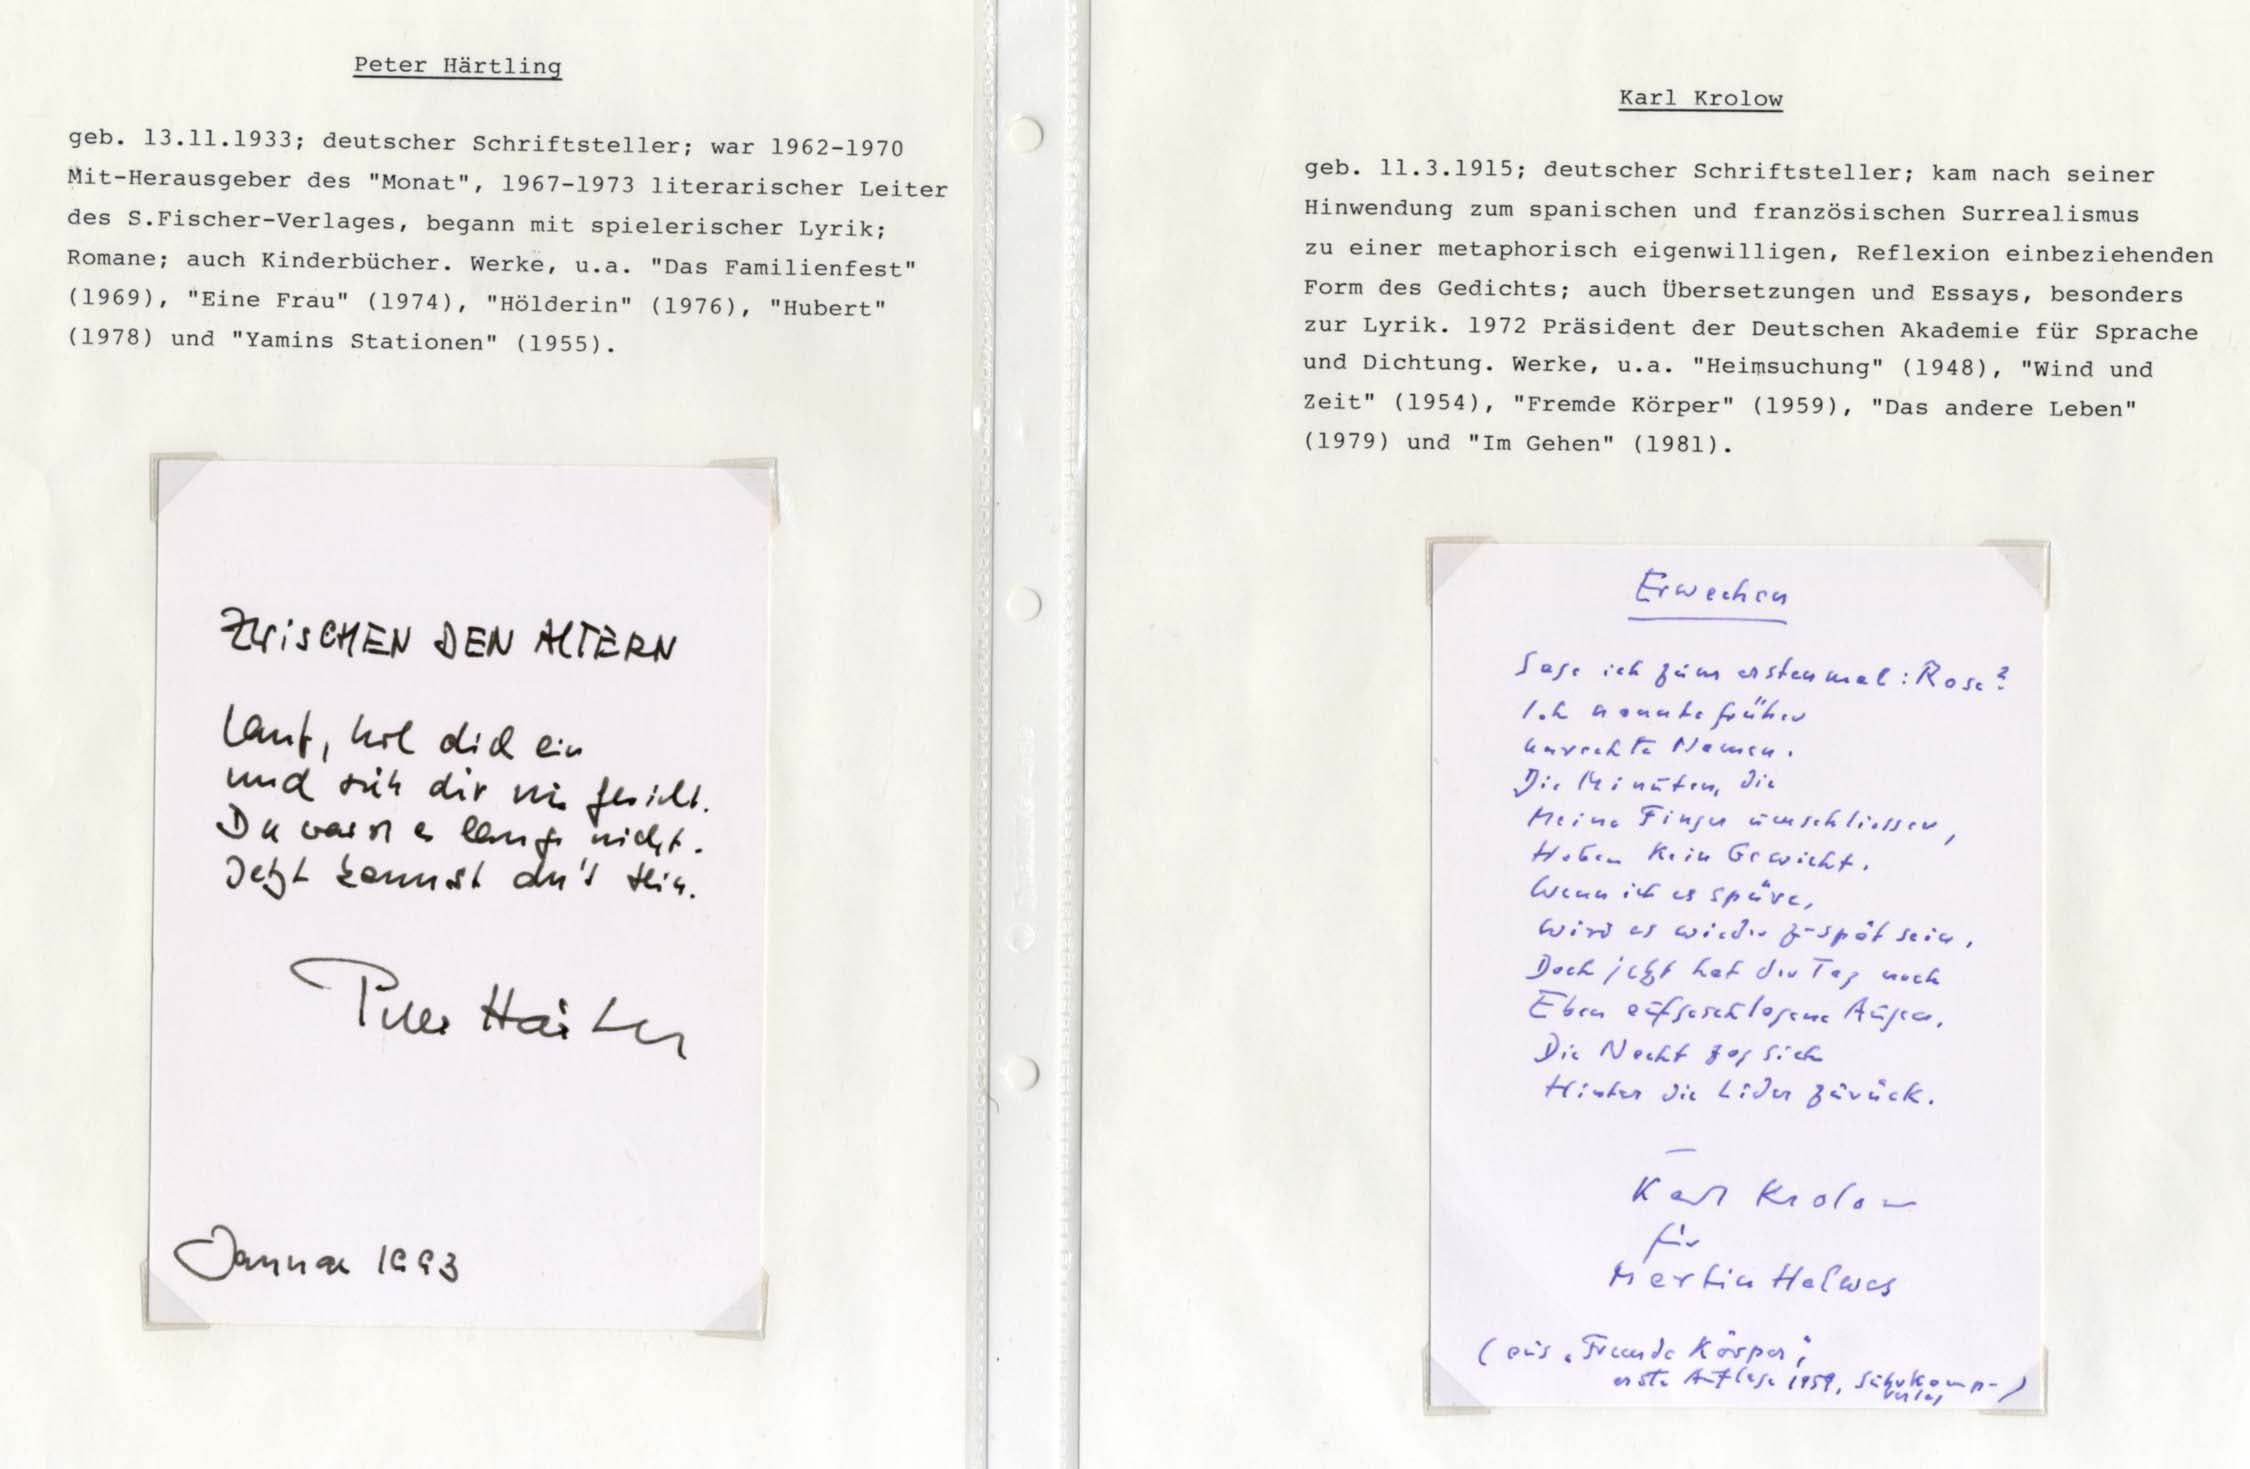 Peter Härtling
geb. 13.11.1933; deutscher Schriftsteller; war 1962-1970
Mit-Herausgeber des "Monat", 1967-1973 literarischer Leiter
des S.Fischer-Verlages, begann mit spielerischer Lyrik;
Romane; auch Kinderbücher. Werke, u.a. "Das Familienfest"
(1969), "Eine Frau" (1974), "Hölderin" (1976), "Hubert"
(1978) und "Yamins Stationen" (1955).
ZWISCHEN DEN ALTERN
Lauf, hol dich ein
und sieh dir ins Gesicht.
Du warst es lange nicht.
Jetzt kannst du's sein.
Peter Härtling
Januar 1993
Karl Krolow
geb. 11.3.1915; deutscher Schriftsteller; kam nach seiner
Hinwendung zum spanischen und französischen Surrealismus
zu einer metaphorisch eigenwilligen, Reflexion einbeziehenden
Form des Gedichts; auch Übersetzungen und Essays, besonders
zur Lyrik. 1972 Präsident der Deutschen Akademie für Sprache
und Dichtung. Werke, u.a. "Heimsuchung" (1948), "Wind und
Zeit" (1954), "Fremde Körper" (1959), "Das andere Leben"
(1979) und "Im Gehen" (1981).
Erwachen
Sage ich zum erstenmal: Rose?
Ich nannte früher
unrechte Namen.
Die Minuten, die
Meine Finger umschliessen,
Haben kein Gewicht.
Wenn ich es spüre,
Wird es wieder zu spät sein.
Doch jetzt hat der Tag noch
Eben aufgeschlagene Augen.
Die Nacht zog sich
Hinter die Lider zurück.
Karl Krolow
für
Martin Helwes
(aus „Fremde Körper",
erste Auflage 1959, Suhrkamp-
verlag)